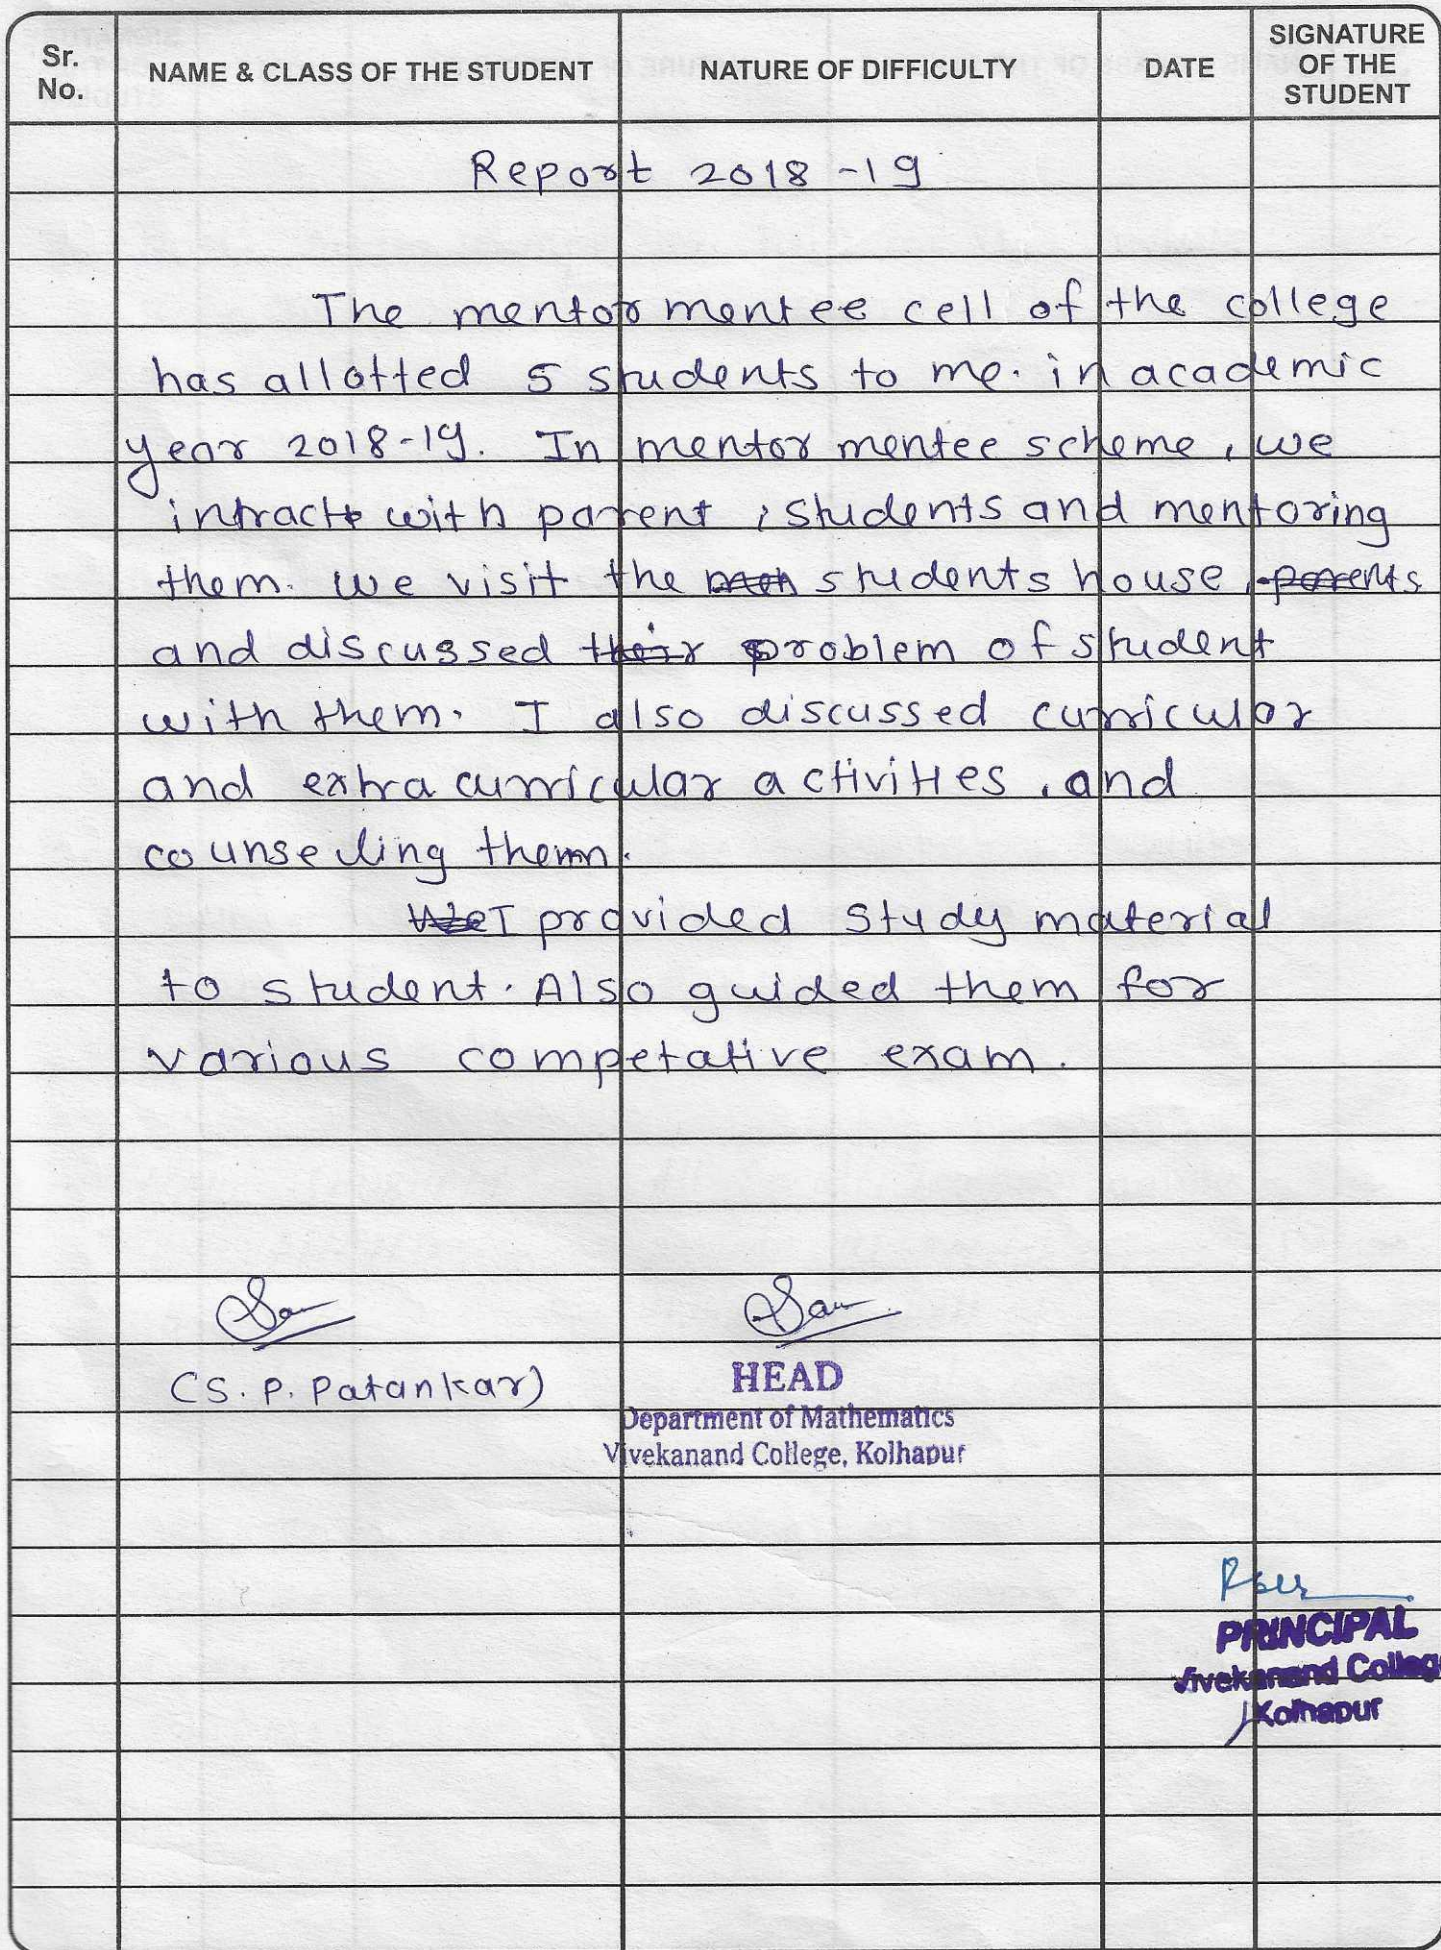 Sr. No. NAME & CLASS OF THE STUDENT NATURE OF DIFFICULTY DATE SIGNATURE OF THE STUDENT
Report 2018-19
The mentor mentee cell of the college
has allotted 5 students to me. in academic
year 2018-19. In mentor mentee scheme, we
intract with parent, students and mentoring
them. we visit the students house, parents
and discussed their problem of student
with them. I also discussed curricular
and extra curricular activities, and
counselling them.
We I provided study material
to student. Also guided them for
various competative exam.
(S. P. Patankar)
HEAD
Department of Mathematics
Vivekanand College, Kolhapur
PRINCIPAL
Vivekanand College
Kolhapur